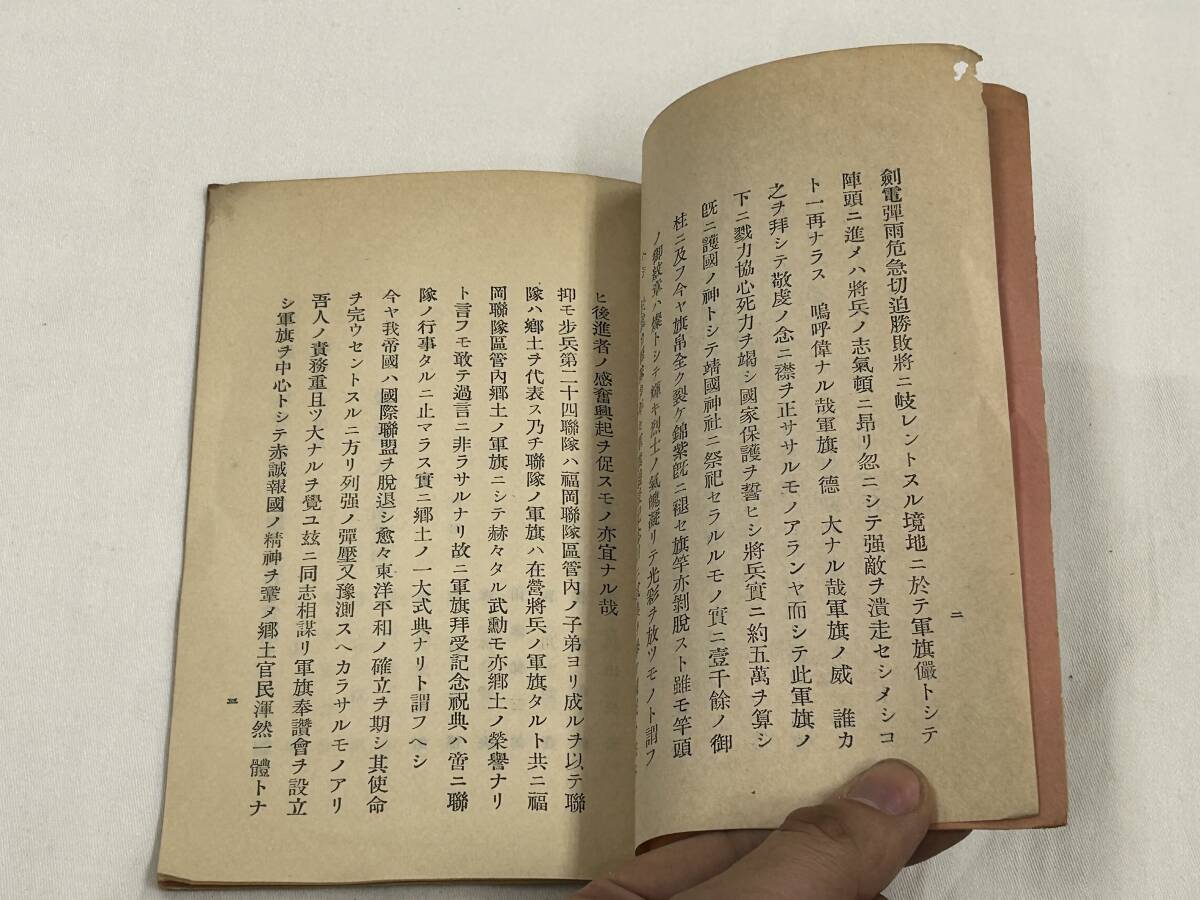 二
劍電彈雨危急切迫勝敗將ニ岐レントスル境地ニ於テ軍旗儼トシテ
陣頭ニ進メハ將兵ノ志氣頓ニ昻リ忽ニシテ强敵ヲ潰走セシメシコ
ト一再ナラス 嗚呼偉ナル哉軍旗ノ德 大ナル哉軍旗ノ威 誰カ
之ヲ拜シテ敬虔ノ念ニ襟ヲ正ササルモノアランヤ而シテ此軍旗ノ
下ニ戮力協心死力ヲ竭シ國家保護ヲ誓ヒシ將兵實ニ約五萬ヲ算シ
旣ニ護國ノ神トシテ靖國神社ニ祭祀セラルルモノ實ニ壹千餘ノ御
柱ニ及フ今ヤ旗帛全ク裂ケ錦紫旣ニ褪セ旗竿亦剝脫スト雖モ竿頭
ノ御紋章ハ燦トシテ輝キ烈士ノ氣魄凝リテ光彩ヲ放ツモノト謂フ
ヒ後進者ノ感奮興起ヲ促スモノ亦宜ナル哉
抑モ步兵第二十四聯隊ハ福岡聯隊區管內ノ子弟ヨリ成ルヲ以テ聯
隊ハ鄕土ヲ代表ス乃チ聯隊ノ軍旗ハ在營將兵ノ軍旗タルト共ニ福
岡聯隊區管內鄕土ノ軍旗ニシテ赫々タル武勳モ亦鄕土ノ榮譽ナリ
ト言フモ敢テ過言ニ非ラサルナリ故ニ軍旗拜受記念祝典ハ啻ニ聯
隊ノ行事タルニ止マラス實ニ鄕土ノ一大式典ナリト謂フヘシ
今ヤ我帝國ハ國際聯盟ヲ脫退シ愈々東洋平和ノ確立ヲ期シ其使命
ヲ完ウセントスルニ方リ列强ノ彈壓又豫測スヘカラサルモノアリ
吾人ノ責務重且ツ大ナルヲ覺ユ玆ニ同志相謀リ軍旗奉讚會ヲ設立
シ軍旗ヲ中心トシテ赤誠報國ノ精神ヲ鞏メ鄕土官民渾然一體トナ
三